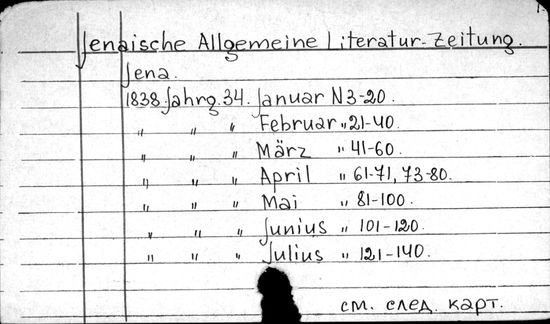 Jenaische Allgemeine Literatur-Zeitung.
Jena.
1838. Jahrg. 34. Januar N 3-20.
" " " Februar " 21-40.
" " " März " 41-60.
" " " April " 61-71, 73-80.
" " " Mai " 81-100.
" " " Junius " 101-120.
" " " Julius " 121-140.
см. след. карт.